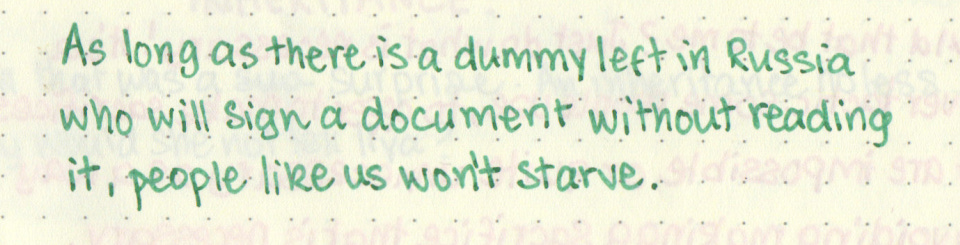 As long as there is a dummy left in Russia
who will sign a document without reading
it, people like us won't starve.